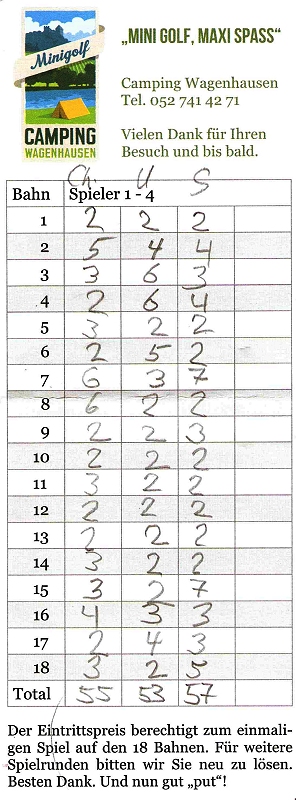 Minigolf
CAMPING
WAGENHAUSEN
„MINI GOLF, MAXI SPASS“
Camping Wagenhausen
Tel. 052 741 42 71
Vielen Dank für Ihren
Besuch und bis bald.
Ch. U S
Bahn Spieler 1 - 4
1 2 2 2
2 5 4 4
3 3 6 3
4 2 6 4
5 3 2 2
6 2 5 2
7 6 3 7
8 6 2 2
9 2 2 3
10 2 2 2
11 3 2 2
12 2 2 2
13 2 2 2
14 3 2 2
15 3 2 7
16 4 3 3
17 2 4 3
18 3 2 5
Total 55 53 57
Der Eintrittspreis berechtigt zum einmali-
gen Spiel auf den 18 Bahnen. Für weitere
Spielrunden bitten wir Sie neu zu lösen.
Besten Dank. Und nun gut „put“!